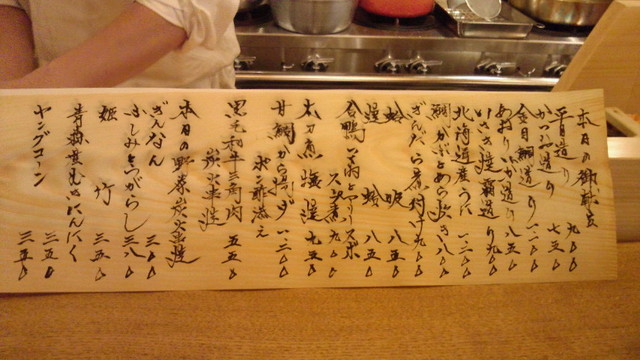 本日の御献立
平目造り 九〇〇
かつお造り 七五〇
金目鯛造り 一二〇〇
あおりいか造り 八五〇
いさき焼霜造り 九〇〇
北海道産うに 一二〇〇
鯛かぶとあら炊き 一八〇〇
ぎんだら煮付け 九〇〇
蛤 八五〇
焼蛤 八五〇
合鴨
九〇〇
太刀魚塩焼 七五〇
甘鯛から揚げ 一二〇〇
酢添え
黒毛和牛三角肉
炭火焼 五五〇〇
本日の野菜炭火焼
ぎんなん 三〇〇
ふしみとうがらし 三八〇
姫竹 三五〇
青森産黒にんにく 三五〇
ヤングコーン 三五〇